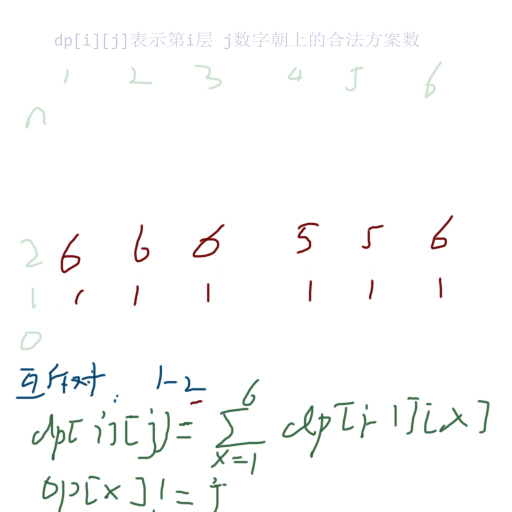 dp[i][j]表示第i层 j数字朝上的合法方案数
1 2 3 4 5 6
n
2 6 6 6 5 5 6
1 1 1 1 1 1 1
0
互斥对: 1-2
dp[i][j]= 6∑x=1 dp[i-1][x]
op[x]!=j